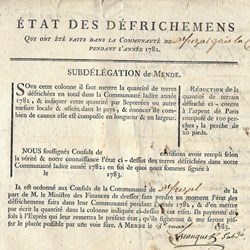 ÉTAT DES DÉFRICHEMENS
QUI ONT ÉTÉ FAITS DANS LA COMMUNAUTÉ DE
PENDANT L'ANNÉE 1782.
SUBDÉLÉGATION DE MENDE.
SOUS cette colonne il faut mettre la quantité de terres
défrichées en total dans la Communauté ladite année
1782, & indiquer cette quantité par Septerées ou autre
mesure locale & usitée dans le pays, & énoncer de com-
bien de cannes elle est composée en longueur & en largeur.
RÉDUCTION de la
quantité de terrain
défriché ci-contre à
l'arpent de Paris
composé de 100 per-
ches, la perche de
10 pieds.
NOUS soussignés Consuls de certifions avoir rempli selon
la vérité & notre connaissance l'état ci-dessus des terres défrichées dans notre
Communauté ladite année 1782 en foi de quoi nous sommes signés à
le 1783.
Il est ordonné aux Consuls de la Communauté de de la
part de M. le Ministre des Finances de dresser sans perdre un moment l'état des
défrichemens faits dans leur Communauté pendant l'année 1782, & d'en mettre
la quantité dans la colonne indiquée ci-dessus à cet effet. Ils répondront de 20 sols
à l'Exprès qui leur remettra le présent état, & pareille somme pour son
retour s'il y va une autre fois. A MENDE le 1783.